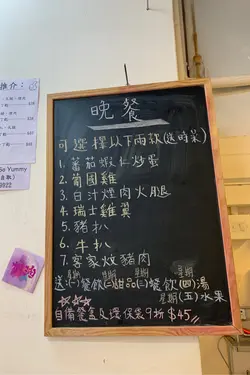 晚餐
可選擇以下兩款(送時菜)
1. 蕃茄蝦仁炒蛋
2. 葡國雞
3. 日汁煙肉火腿
4. 瑞士雞翼
5. 豬扒
6. 牛扒
7. 客家炆豬肉
送:星期(一)餐飲(二)甜品星期(三)餐飲星期(四)湯
星期(五)水果
自備餐盒及環保袋9折 $45
推介:
So Yummy
9822